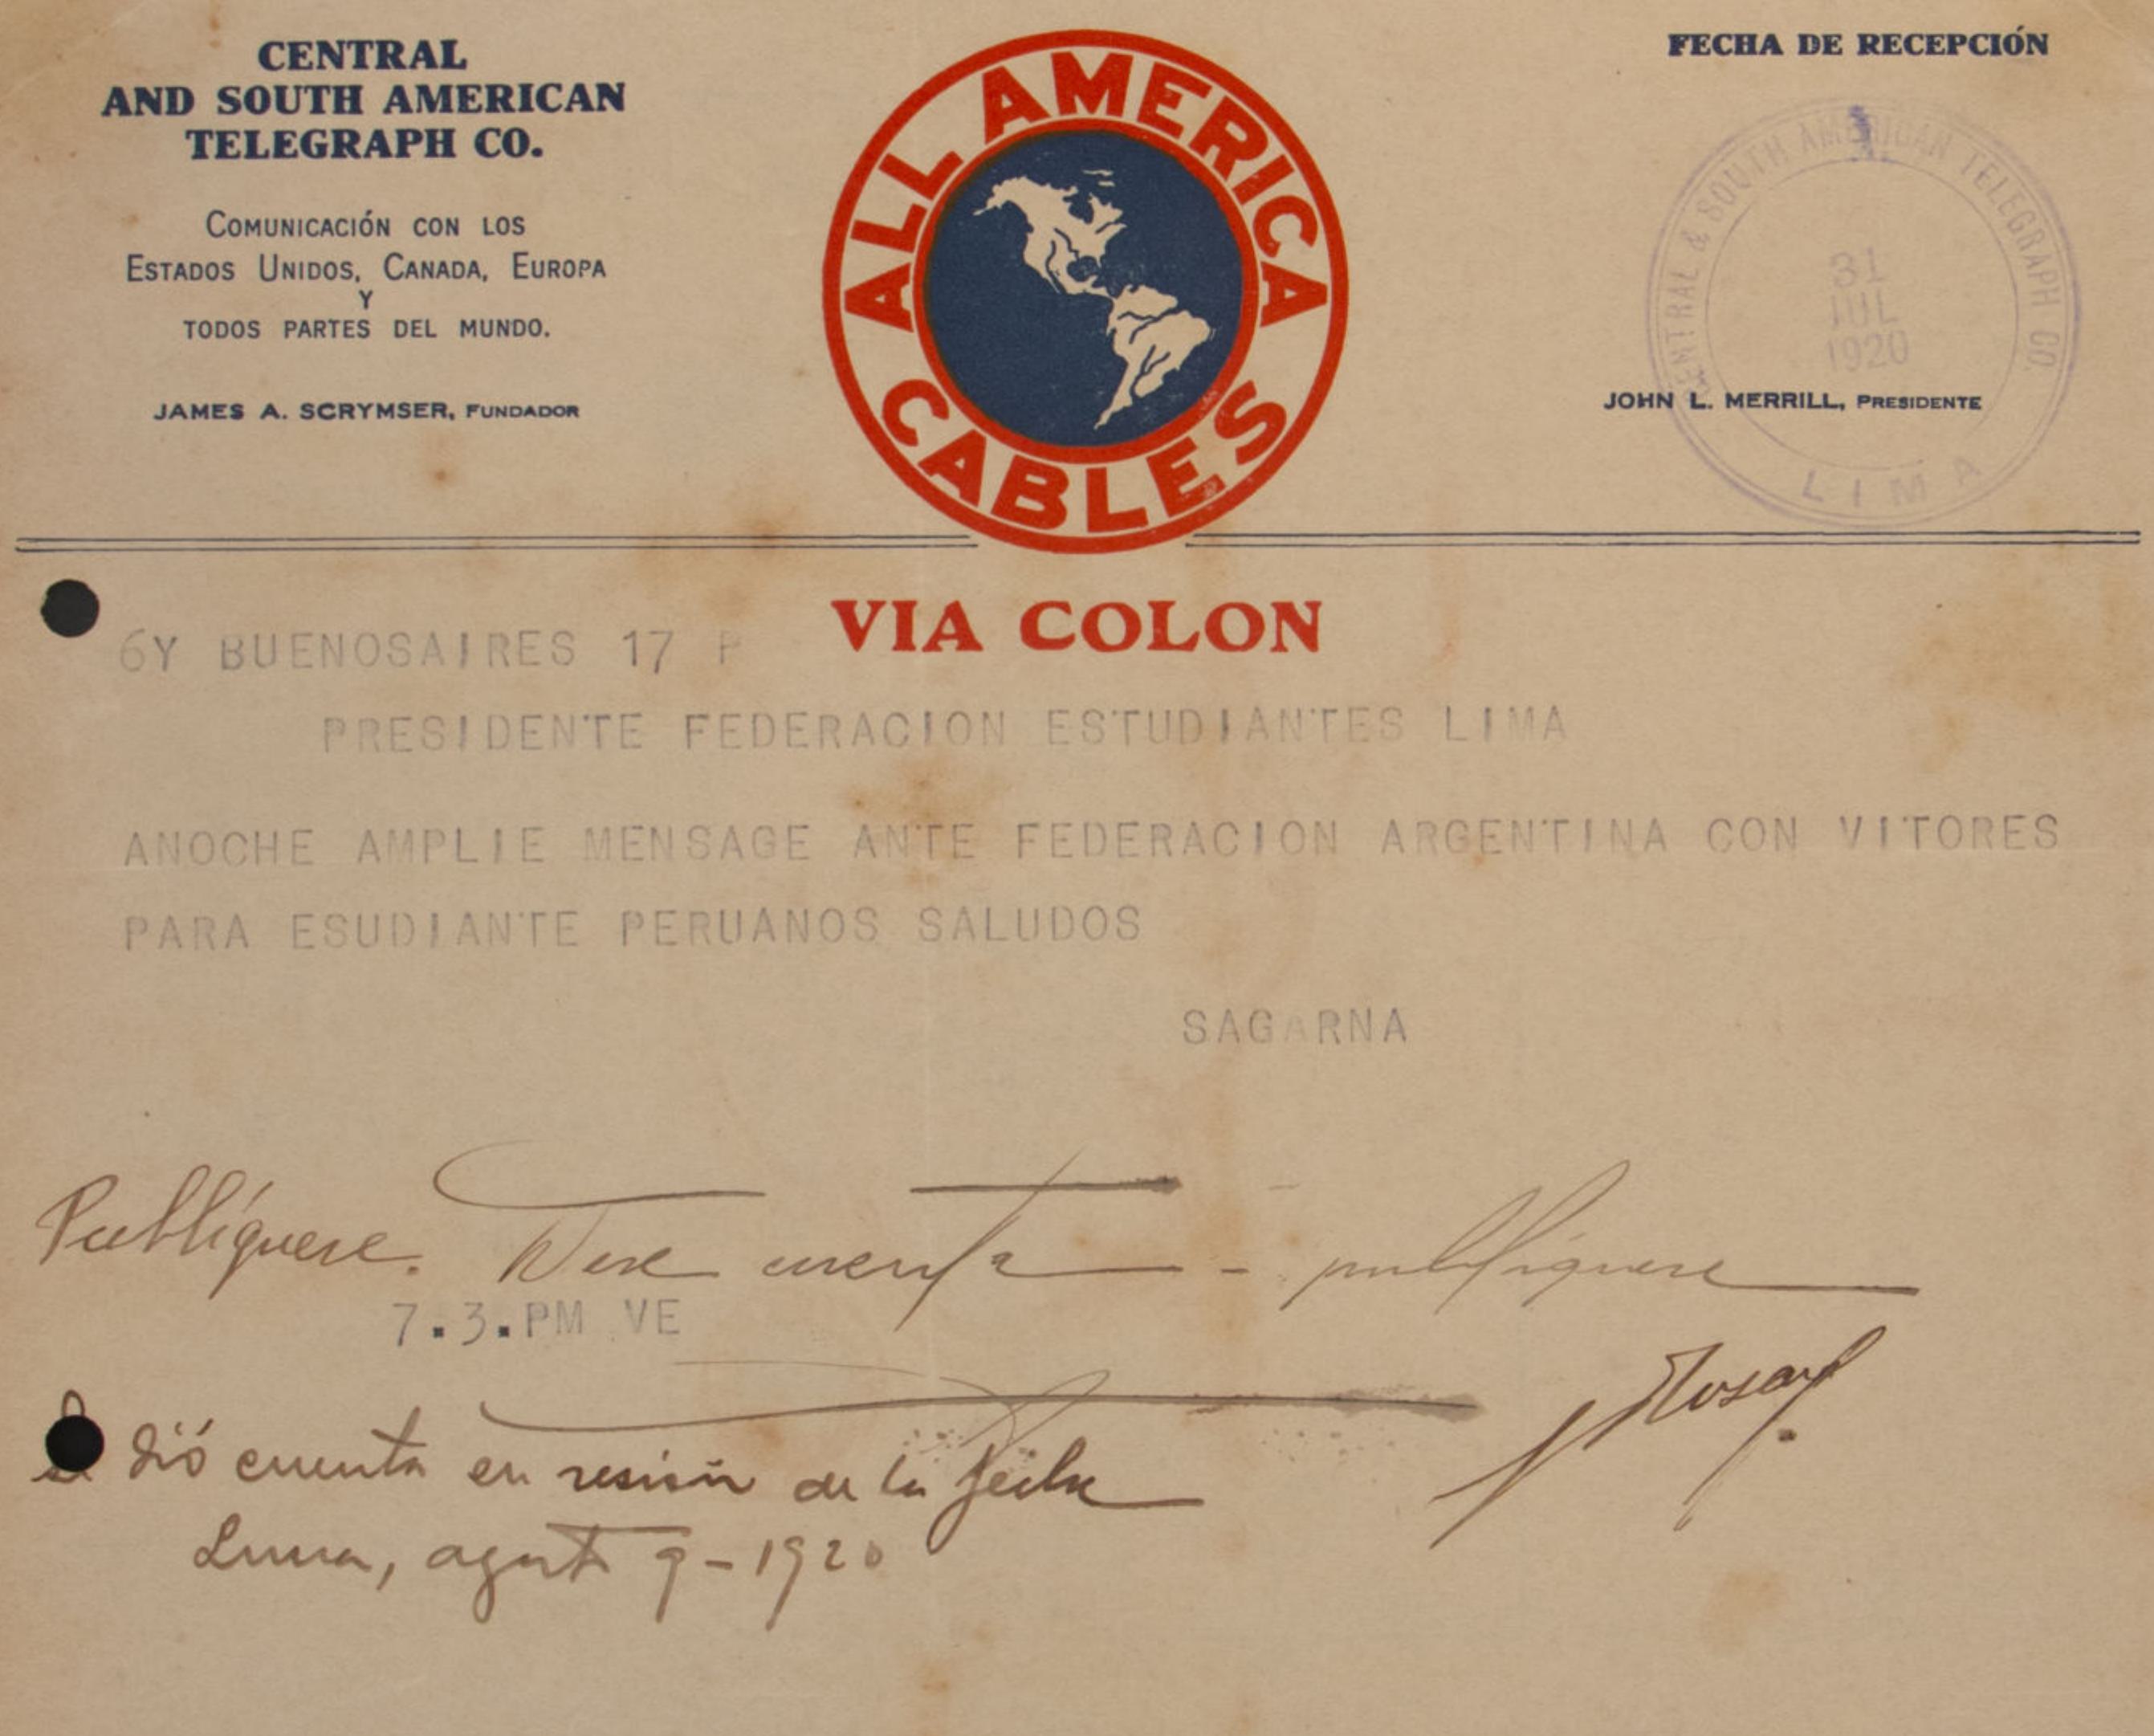 CENTRAL
AND SOUTH AMERICAN
TELEGRAPH CO.
COMUNICACIÓN CON LOS
ESTADOS UNIDOS, CANADA, EUROPA
Y
TODOS PARTES DEL MUNDO.
JAMES A. SCRYMSER, FUNDADOR
ALL AMERICA
CABLES
FECHA DE RECEPCIÓN
CENTRAL & SOUTH AMERICAN TELEGRAPH CO.
31
JUL
1920
LIMA
JOHN L. MERRILL, PRESIDENTE
VIA COLON
6Y BUENOSAIRES 17 P
PRESIDENTE FEDERACION ESTUDIANTES LIMA
ANOCHE AMPLIE MENSAGE ANTE FEDERACION ARGENTINA CON VITORES
PARA ESUDIANTE PERUANOS SALUDOS
SAGARNA
Publíquese. Dese cuenta - publíquese
7.3.PM VE
dió cuenta en sesión de la fecha
Lima, agosto 9-1920